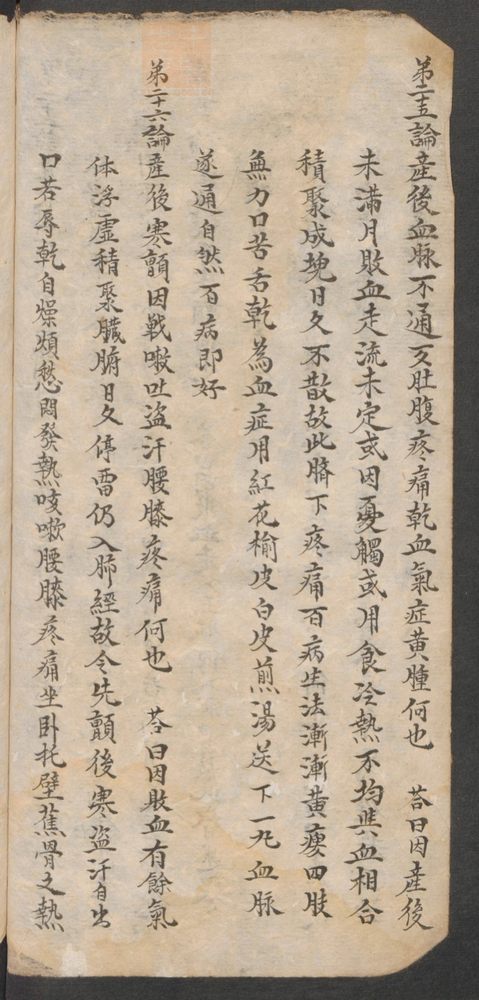 第二十五論產後血脉不通又肚腹疼痛乾血氣症黃腫何也　荅曰因產後
未滿月敗血走流未定或因憂觸或用食冷熱不均與血相合
積聚成塊日久不散故此臍下疼痛百病生法漸漸黃瘦四肢
無力口苦舌乾為血症用紅花榆皮白皮煎湯送下一丸血脉
遂通自然百病即好
第二十六論產後寒顫因戰嗽吐盗汗腰膝疼痛何也　荅曰因敗血有餘氣
体浮虛積聚臟腑日久停留仍入肺經故令先顫後寒盗汗自出
口若辱乾自燥煩愁悶發熱咳嗽腰膝疼痛坐卧托壁蕉骨之熱